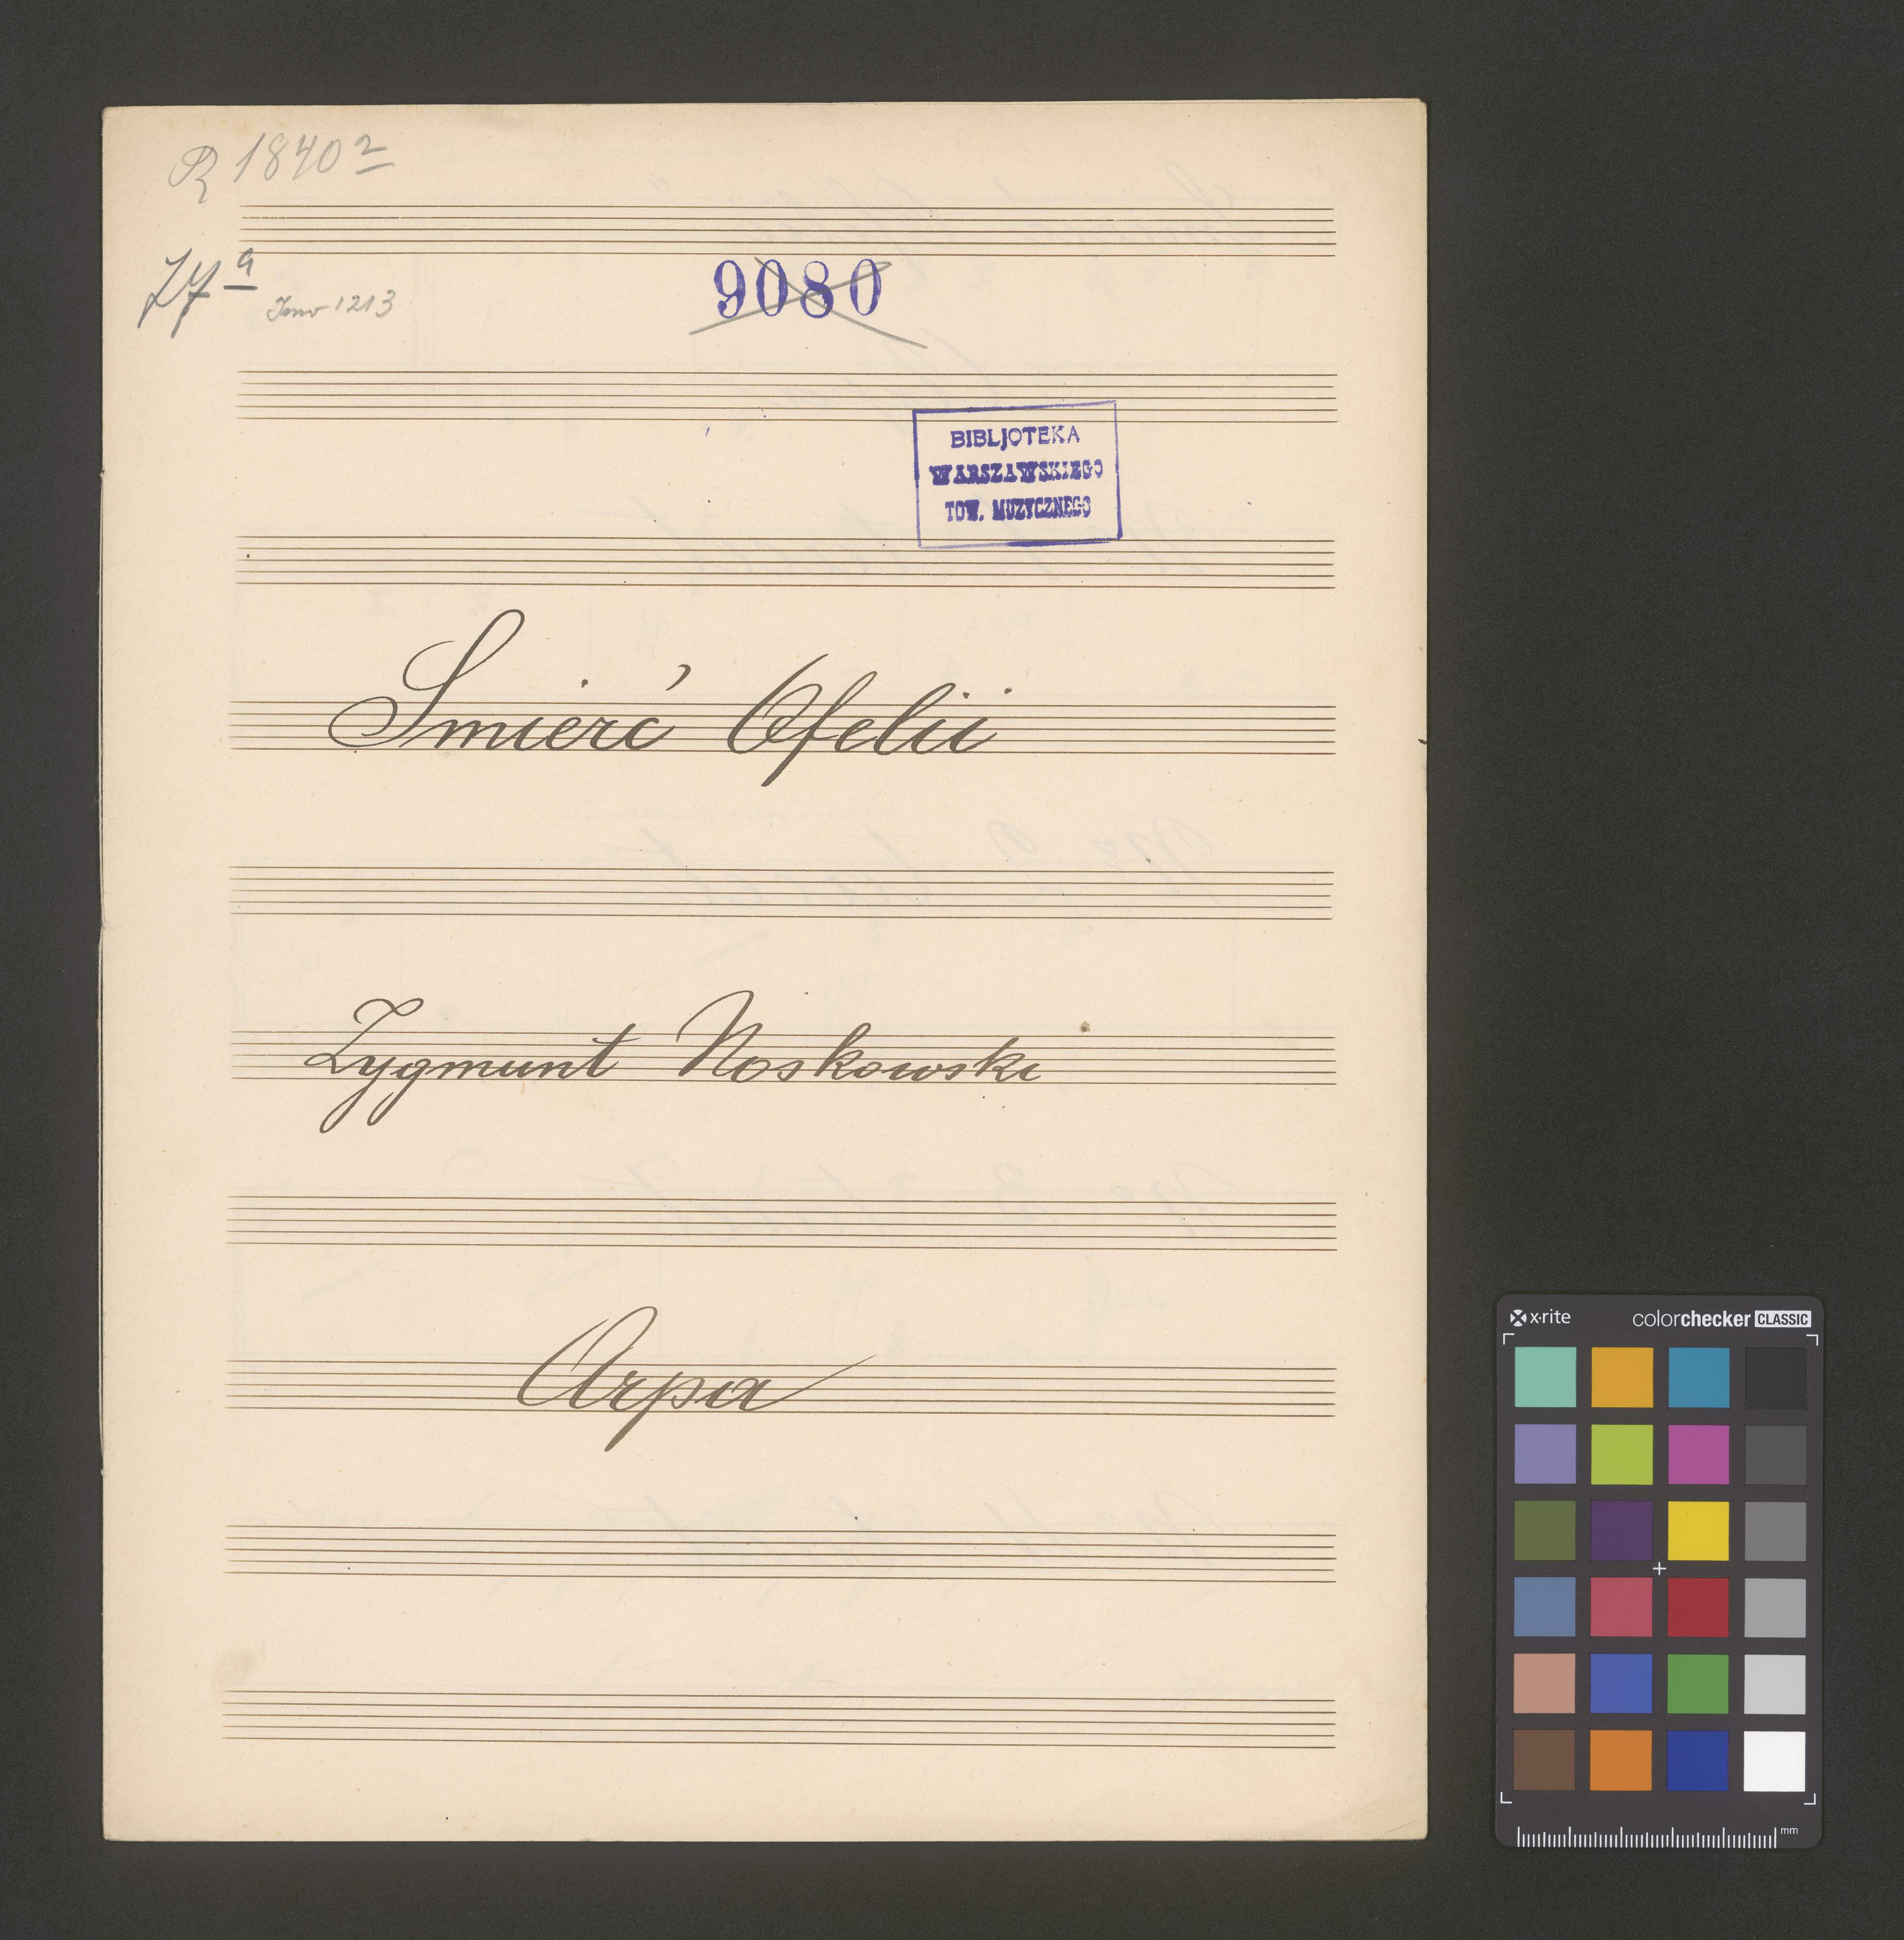 R 1840²
Inv 1213
9080
BIBLJOTEKA
WARSZAWSKIEGO
TOW. MUZYCZNEGO
Smierć Ofelii
Zygmunt Noskowski
Arpa
x·rite
colorchecker CLASSIC
mm